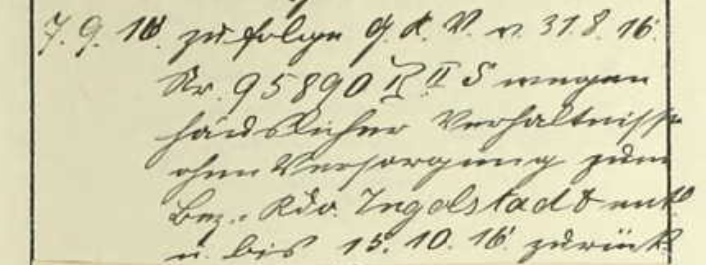 7. 9. 16. zufolge G. K. V. v. 31. 8. 16.
Nr. 95890 II S wegen
häuslicher Verhältnisse
ohne Versorgung zum
Bez.-Kdo. Ingolstadt entl.
u. bis 15. 10. 16 zurück